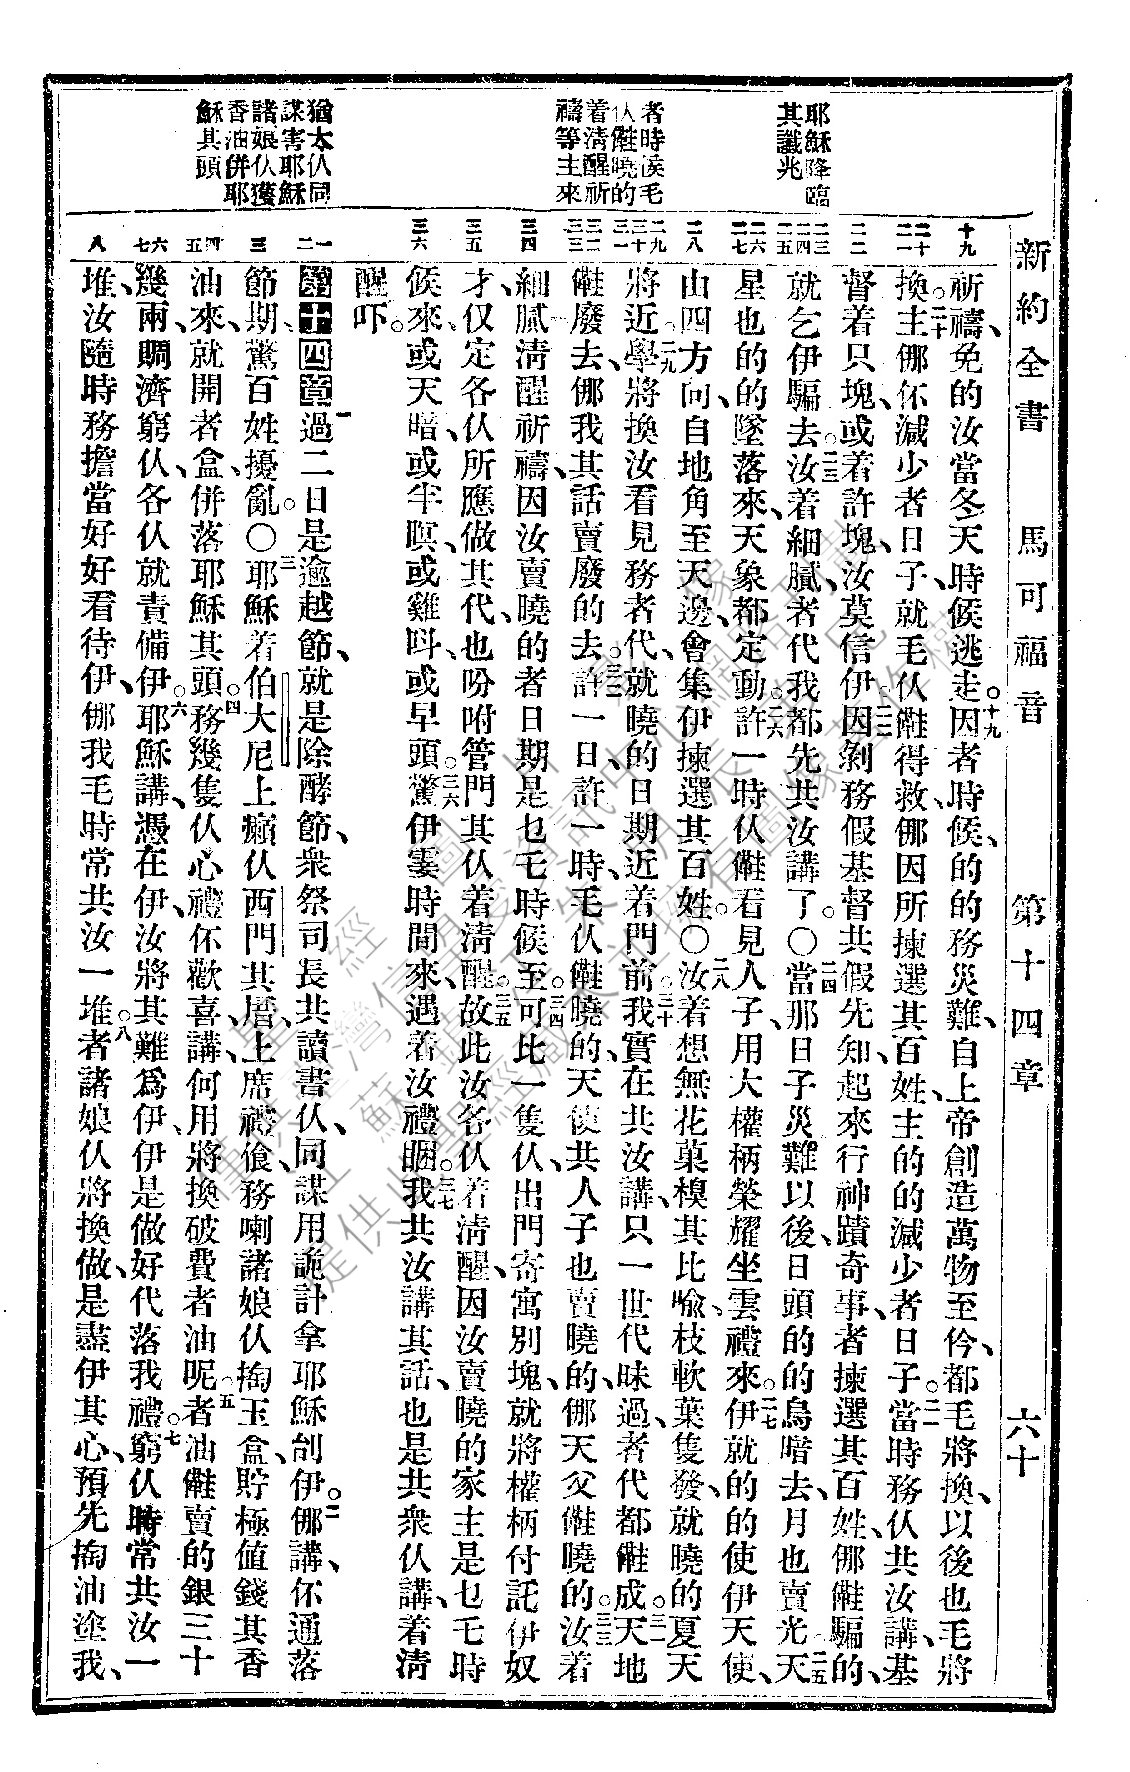 新約全書 馬可福音 第十四章 六十
耶穌降臨
其讖兆
者時候毛
仈𣍐曉的
着清醒祈
禱等主來
猶太仈同
謀害耶穌
諸娘仈獲
香油併耶
穌其頭
十九
二十
二一
二二
二三
二四
二五
二六
二七
二八
二九
三十
三一
三二
三三
三四
三五
三六
一
二
三
四
五
六
七
八
祈禱、免的汝當冬天時候逃走。十九因者時候的的務災難、自上帝創造萬物至仱、都毛將換、以後也毛將
換。二十主㑚伓減少者日子、就毛仈𣍐得救、㑚因所揀選其百姓、主的的減少者日子。二一當時務仈共汝講、基
督着只塊、或着許塊、汝莫信伊。二二因剝務假基督共假先知起來、行神蹟奇事、者揀選其百姓、㑚𣍐騙的、
就乞伊騙去。二三汝着細膩、者代我都先共汝講了。○二四當那日子災難以後、日頭的的烏暗去、月也賣光、二五天
星也的的墜落來、天象都定動。二六許一時仈𣍐看見人子用大權柄榮耀坐雲禮來。二七伊就的的使伊天使、
山四方向自地角至天邊、會集伊揀選其百姓。○二八汝着想無花菓模其比喻、枝軟葉隻發、就曉的夏天
將近。二九學將換汝看見務者代、就曉的日期近着門前。三十我實在共汝講、只一世代昧過、者代都𣍐成。三一天地
𣍐廢去、㑚我其話賣廢的去。三二許一日、許一時、毛仈𣍐曉的、天使共人子也賣曉的、㑚天父𣍐曉的。三三汝着
細膩清醒祈禱、因汝賣曉的者日期是乜乇時候至。三四可比一隻仈、出門寄寓別塊、就將權柄付託伊奴
才、仅定各仈所應做其代、也吩咐管門其仈着清醒。三五故此汝各仈着清醒、因汝賣曉的家主是乜乇時
候來、或天暗、或半暝、或雞呌、或早頭。三六驚伊霎時間來、遇着汝禮睏。三七我共汝講其話、也是共衆仈講、着清
醒吓。
第十四章 一過二日是逾越節、就是除酵節、衆祭司長共讀書仈、同謀用詭計拿耶穌刣伊。二㑚講、伓通落
節期、驚百姓擾亂。○三耶穌着伯大尼上癩仈西門其厝、上席禮飡、務喇諸娘仈掏玉盒、貯極值錢其香
油來、就開者盒、併落耶穌其頭。四務幾隻仈心禮伓歡喜、講、何用將換破費者油呢。五者油𣍐賣的銀三十
幾兩、賙濟窮仈、各仈就責備伊。六耶穌講、憑在伊、汝將其難爲伊、伊是做好代落我禮。七窮仈時常共汝一
堆、汝隨時務擔當好好看待伊、㑚我毛時常共汝一堆。八者諸娘仈將換做、是盡伊其心、預先掏油塗我、